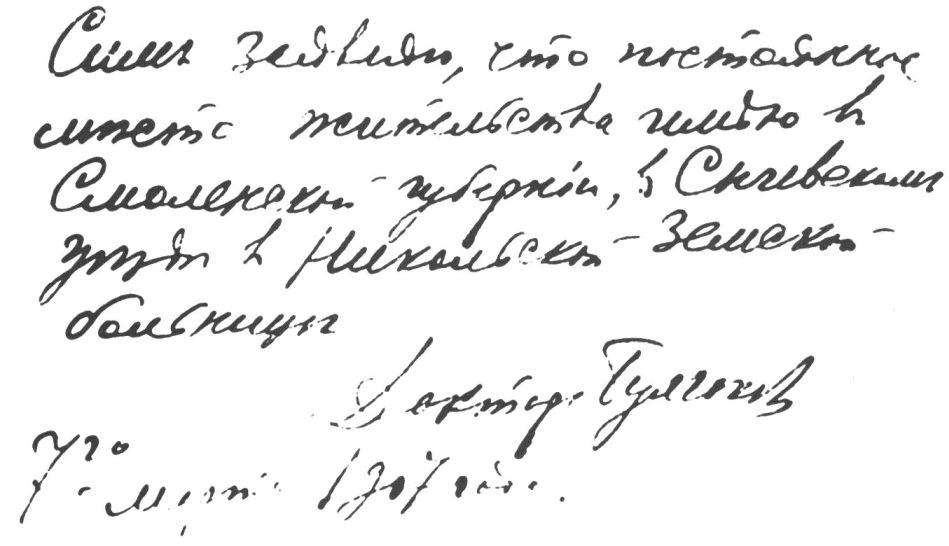 Симъ заявляю, что постоянное
мѣсто жительства имѣю въ
Смоленской губерніи, въ Сычевскомъ
уѣздѣ въ Никольской Земской
больницѣ
Докторъ Булгаковъ
7го марта 1917 года.